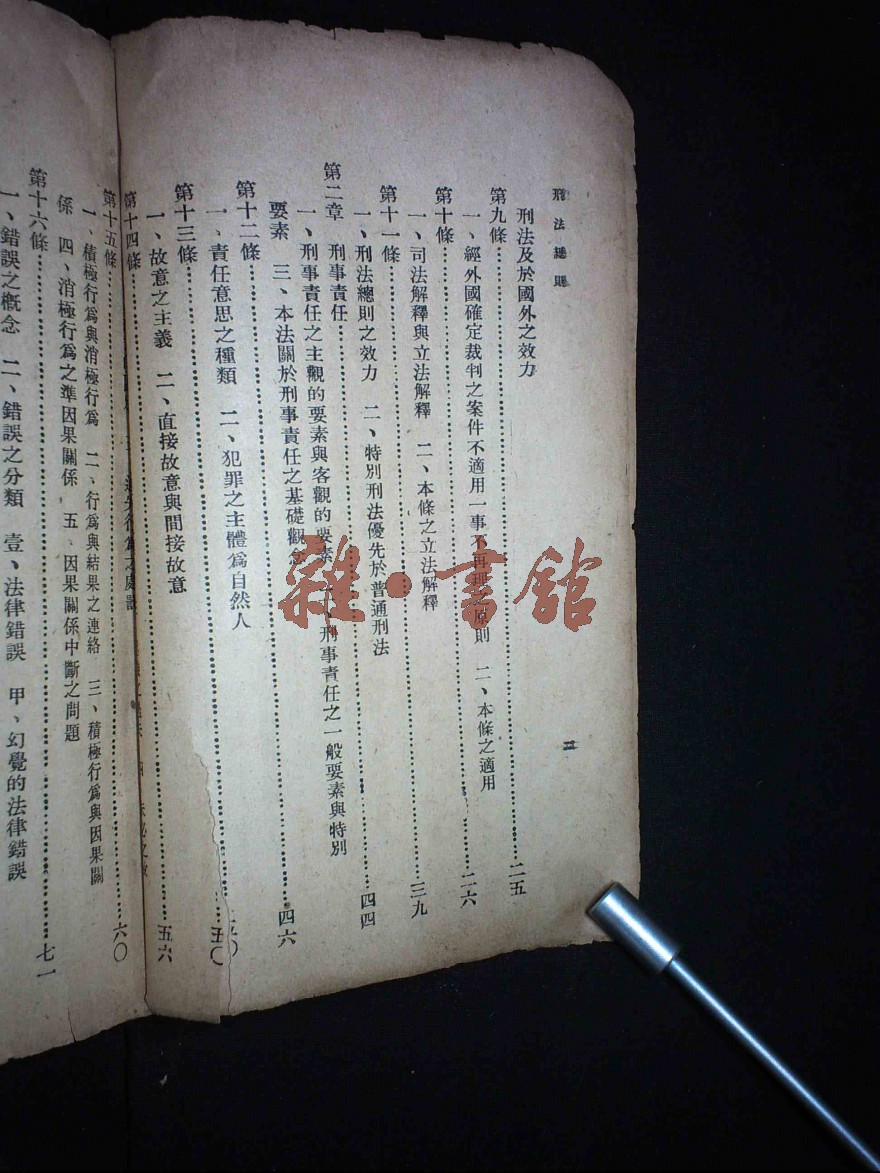 刑法總則
二
刑法及於國外之效力
第九條……二五
一、經外國確定裁判之案件不適用一事不再理之原則　二、本條之適用
第十條……二六
一、司法解釋與立法解釋　二、本條之立法解釋
第十一條……三九
一、刑法總則之效力　二、特別刑法優先於普通刑法
第二章　刑事責任……四四
一、刑事責任之主觀的要素與客觀的要素　二、刑事責任之一般要素與特別
要素　三、本法關於刑事責任之基礎觀念
第十二條……四六
一、責任意思之種類　二、犯罪之主體爲自然人
第十三條……五〇
一、故意之主義　二、直接故意與間接故意
第十四條……五六
第十五條……六〇
一、積極行爲與消極行爲　二、行爲與結果之連絡　三、積極行爲與因果關
係　四、消極行爲之準因果關係　五、因果關係中斷之問題
第十六條……七一
一、錯誤之概念　二、錯誤之分類　壹、法律錯誤　甲、幻覺的法律錯誤
雜·書館